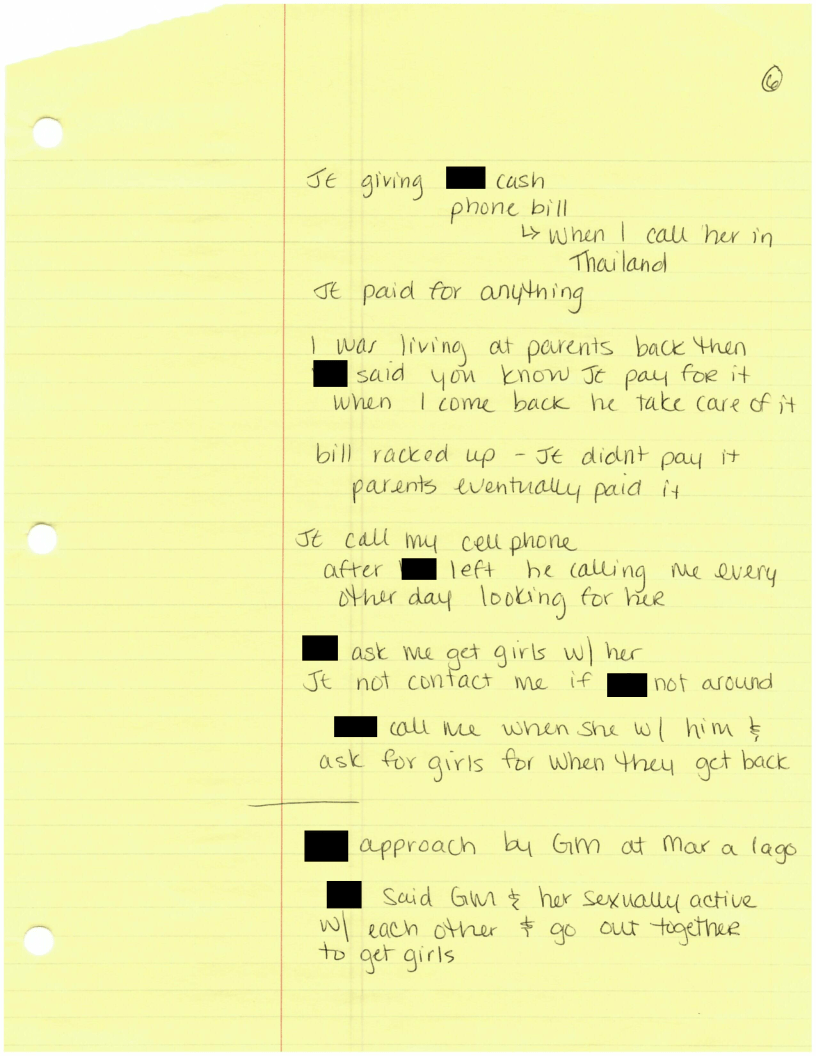 6
JE giving cash
phone bill
↳ when I call her in
Thailand
JE paid for anything
I was living at parents back then
said you know JE pay for it
when I come back he take care of it
bill racked up - JE didnt pay it
parents eventually paid it
JE call my cell phone
after left he calling me every
other day looking for her
ask me get girls w/ her
JE not contact me if not around
call me when she w/ him &
ask for girls for when they get back
approach by GM at Mar a lago
Said GM & her sexually active
w/ each other & go out together
to get girls